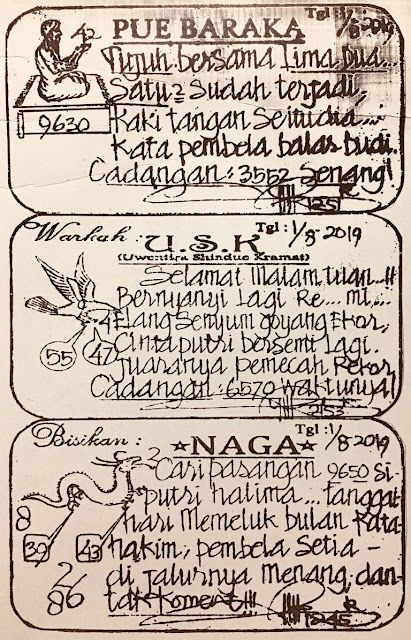 Tgl : 1/8-2019
PUE BARAKA
42
Tujuh bersama Lima Dua...
Satu2 sudah terjadi,
9630
Kaki tangan Seitudia...
Kata pembela balas budi.
Cadangan : 3552 Senang!
1251
Warkah :
U.S.K
Tgl : 1/8-2019
(Uwentira Shindue Kramat)
Selamat Malam tuan..!!
Bernyanyi Lagi Re... mi...
4
Elang Senyum goyang Ekor,
55
47
Cinta putri bersemi lagi.
Juaranya pemecah Rekor
Cadangan : 6570 waktunya!
253
Bisikan :
☆NAGA☆
Tgl : 1/8-2019
2
Cari pasangan 9650 Si-
putri halima... tanggal
8
hari Memeluk bulan Kata
39
43
hakim, pembela Setia -
2/
di Jalurnya Menang, dan-
86
tak Koment!!!
1245